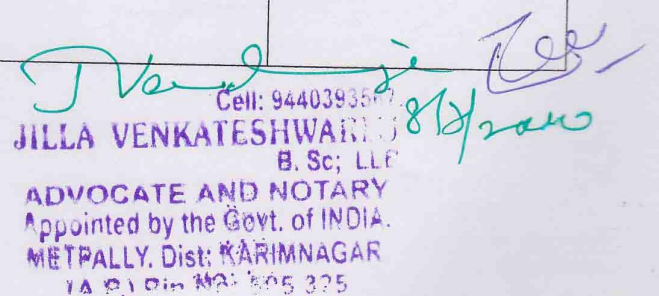 Cell: 9440393567
JILLA VENKATESHWARLU
B. Sc; LLB
ADVOCATE AND NOTARY
Appointed by the Govt. of INDIA.
METPALLY. Dist: KARIMNAGAR
(A.P.) Pin No: 505 325